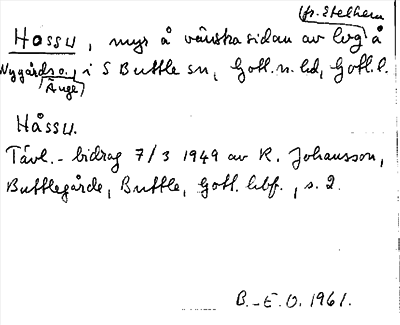 fr. Etelhem
Hossu, myr å vänstra sidan av lvg å
Nygårds o. i S Buttle sn, Gotl. n. hd, Gotl. l.
Änge
Håssu.
Tävl.-bidrag 7/3 1949 av K. Johansson,
Buttlegårde, Buttle, Gotl. hbf., s. 2.
B.-E. O. 1961.